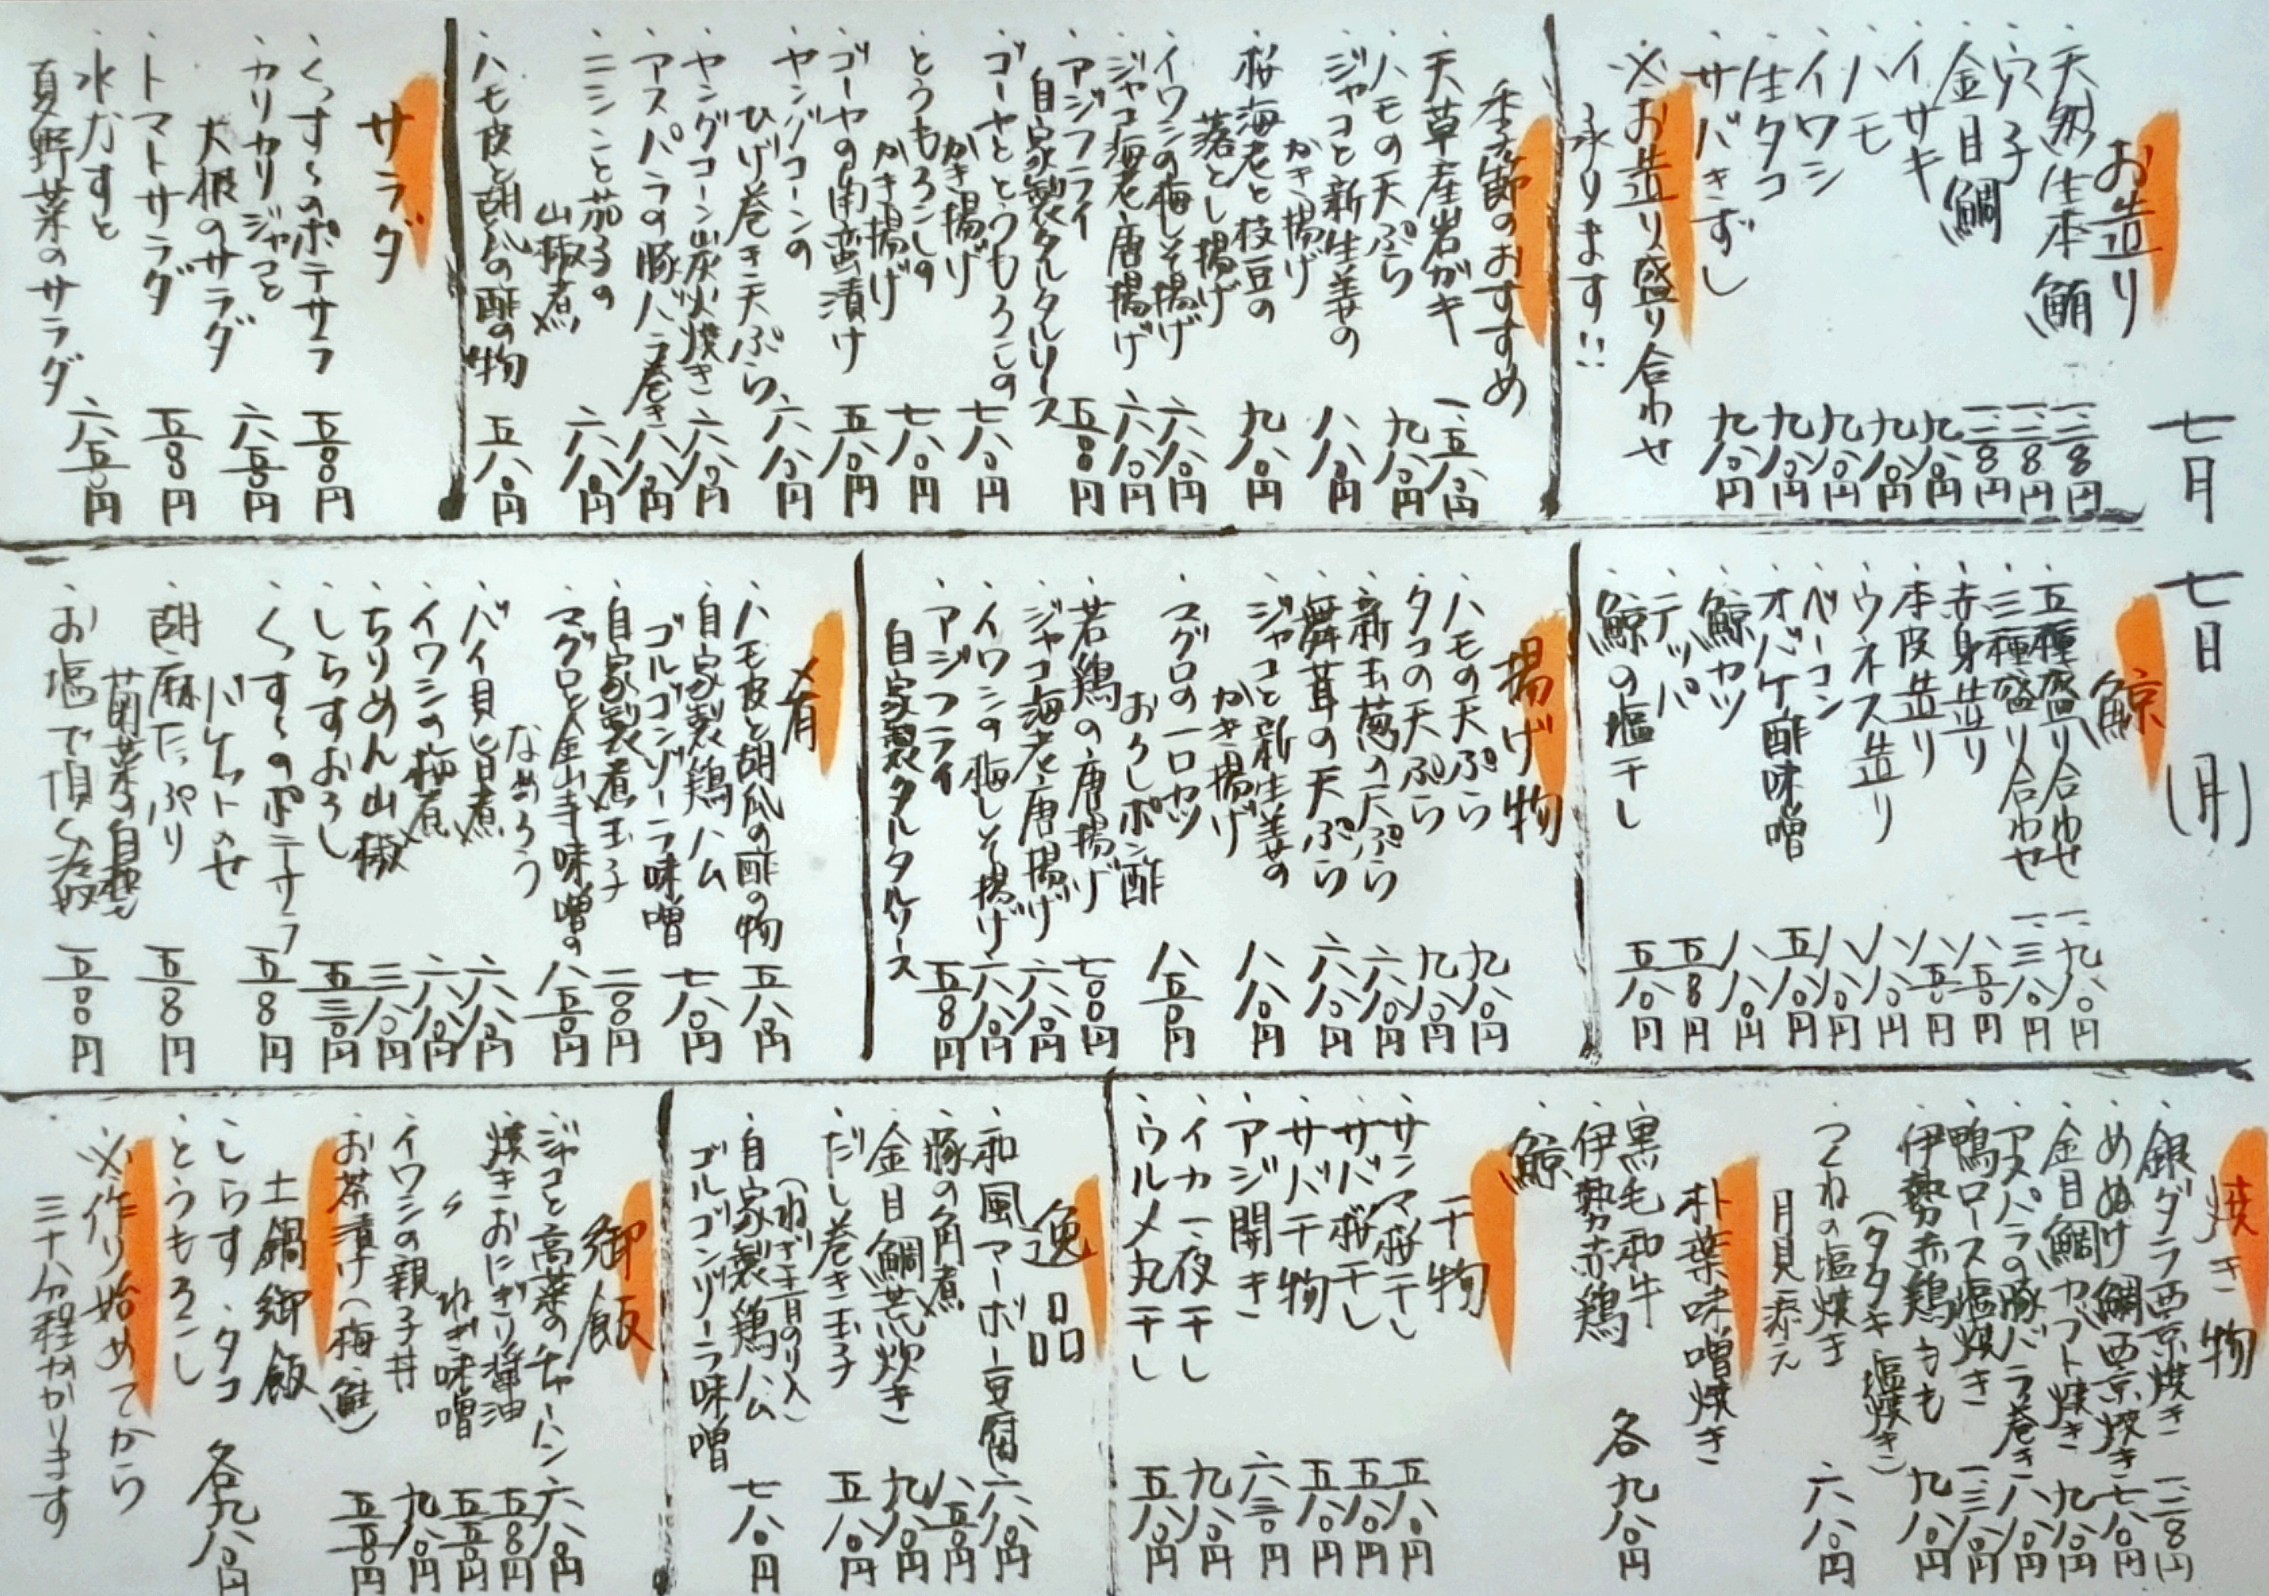 七月七日(月)
お造り
・天然生本鮪 一二八〇円
・穴子 一二八〇円
・金目鯛 一二八〇円
・イサキ 九八〇円
・ハモ 九八〇円
・イワシ 九八〇円
・生タコ 九八〇円
・サバきずし 九八〇円
※お造り盛り合わせ
承ります!!
季節のおすすめ
・天草産岩ガキ 一、五八〇円
・ハモの天ぷら 九八〇円
・ジャコと新生姜の
かき揚げ 八八〇円
・桜海老と枝豆の
落とし揚げ 九八〇円
・イワシの梅しそ揚げ 六八〇円
・ジャコ海老唐揚げ 六八〇円
・アジフライ
自家製タルタルソース 五八〇円
・ゴーヤととうもろこしの
かき揚げ 七八〇円
・とうもろこしの
かき揚げ 七八〇円
・ゴーヤの南蛮漬け 五八〇円
・ヤングコーンの
ひげ巻き天ぷら 六八〇円
・ヤングコーン炭火焼き 六八〇円
・アスパラの豚バラ巻き 八八〇円
・ニシンと茄子の
山椒煮 六八〇円
・ハモ皮と胡瓜の酢の物 五八〇円
サラダ
・くっすくのポテサラ 五八〇円
・カリカリジャコと
大根のサラダ 六八〇円
・トマトサラダ 五八〇円
・水なすと
夏野菜のサラダ 六八〇円
鯨
・五種盛り合わせ 一、九八〇円
・三種盛り合わせ 一、三八〇円
・赤身造り 八五〇円
・本皮造り 八五〇円
・ウネス造り 八八〇円
・ベーコン 八八〇円
・オバケ酢味噌 五八〇円
・鯨カツ 八八〇円
・テッパ 五八〇円
・鯨の塩干し 五八〇円
揚げ物
・ハモの天ぷら 九八〇円
・タコの天ぷら 九八〇円
・新玉葱の天ぷら 六八〇円
・舞茸の天ぷら 六八〇円
・ジャコと新生姜の
かき揚げ 八八〇円
・マグロの一口カツ
おろしポン酢 八五〇円
・若鶏の唐揚げ 七〇〇円
・ジャコ海老唐揚げ 六八〇円
・イワシの梅しそ揚げ 六八〇円
・アジフライ
自家製タルタルソース 五八〇円
肴
・ハモ皮と胡瓜の酢の物 五八〇円
・自家製鶏ハム
ゴルゴンゾーラ味噌 七八〇円
・自家製煮玉子 二〇〇円
・マグロと金山寺味噌の
なめろう 八五〇円
・バイ貝旨煮 六八〇円
・イワシの梅煮 六八〇円
・ちりめん山椒 三八〇円
・しらすおろし 五三〇円
・くっすくのポテサラ
バケットのせ 五八〇円
・胡麻たっぷり
菊菜の白和え 五八〇円
・お塩で頂く冷奴 五八〇円
焼き物
・銀ダラ西京焼き 一二八〇円
・めぬけ鯛西京焼き 七八〇円
・金目鯛カブト焼き 九八〇円
・アスパラの豚バラ巻き 八八〇円
・鴨ロース塩焼き 一三八〇円
・伊勢赤鶏もも
(タタキ・塩焼き) 九八〇円
・つくねの塩焼き
月見添え 六八〇円
朴葉味噌焼き
・黒毛和牛
・伊勢赤鶏
・鯨 各九八〇円
干物
・サンマ桜干し 五八〇円
・サバ桜干し 五八〇円
・サバ干物 五八〇円
・アジ開き 六三〇円
・イカ一夜干し 九八〇円
・ウルメ丸干し 五八〇円
逸品
・和風マーボー豆腐 六八〇円
・豚の角煮 八五〇円
・金目鯛荒炊き 九八〇円
・だし巻き玉子
(ねぎ・青のり入) 五八〇円
・自家製鶏ハム
ゴルゴンゾーラ味噌 七八〇円
御飯
・ジャコと高菜のチャーハン 六八〇円
・焼きおにぎり醤油 五八〇円
〃 ねぎ味噌 五五〇円
・イワシの親子丼 九八〇円
・お茶漬け(梅・鮭) 五五〇円
土鍋御飯
・しらす・タコ
・とうもろこし 各九八〇円
※作り始めてから
三十分程かかります